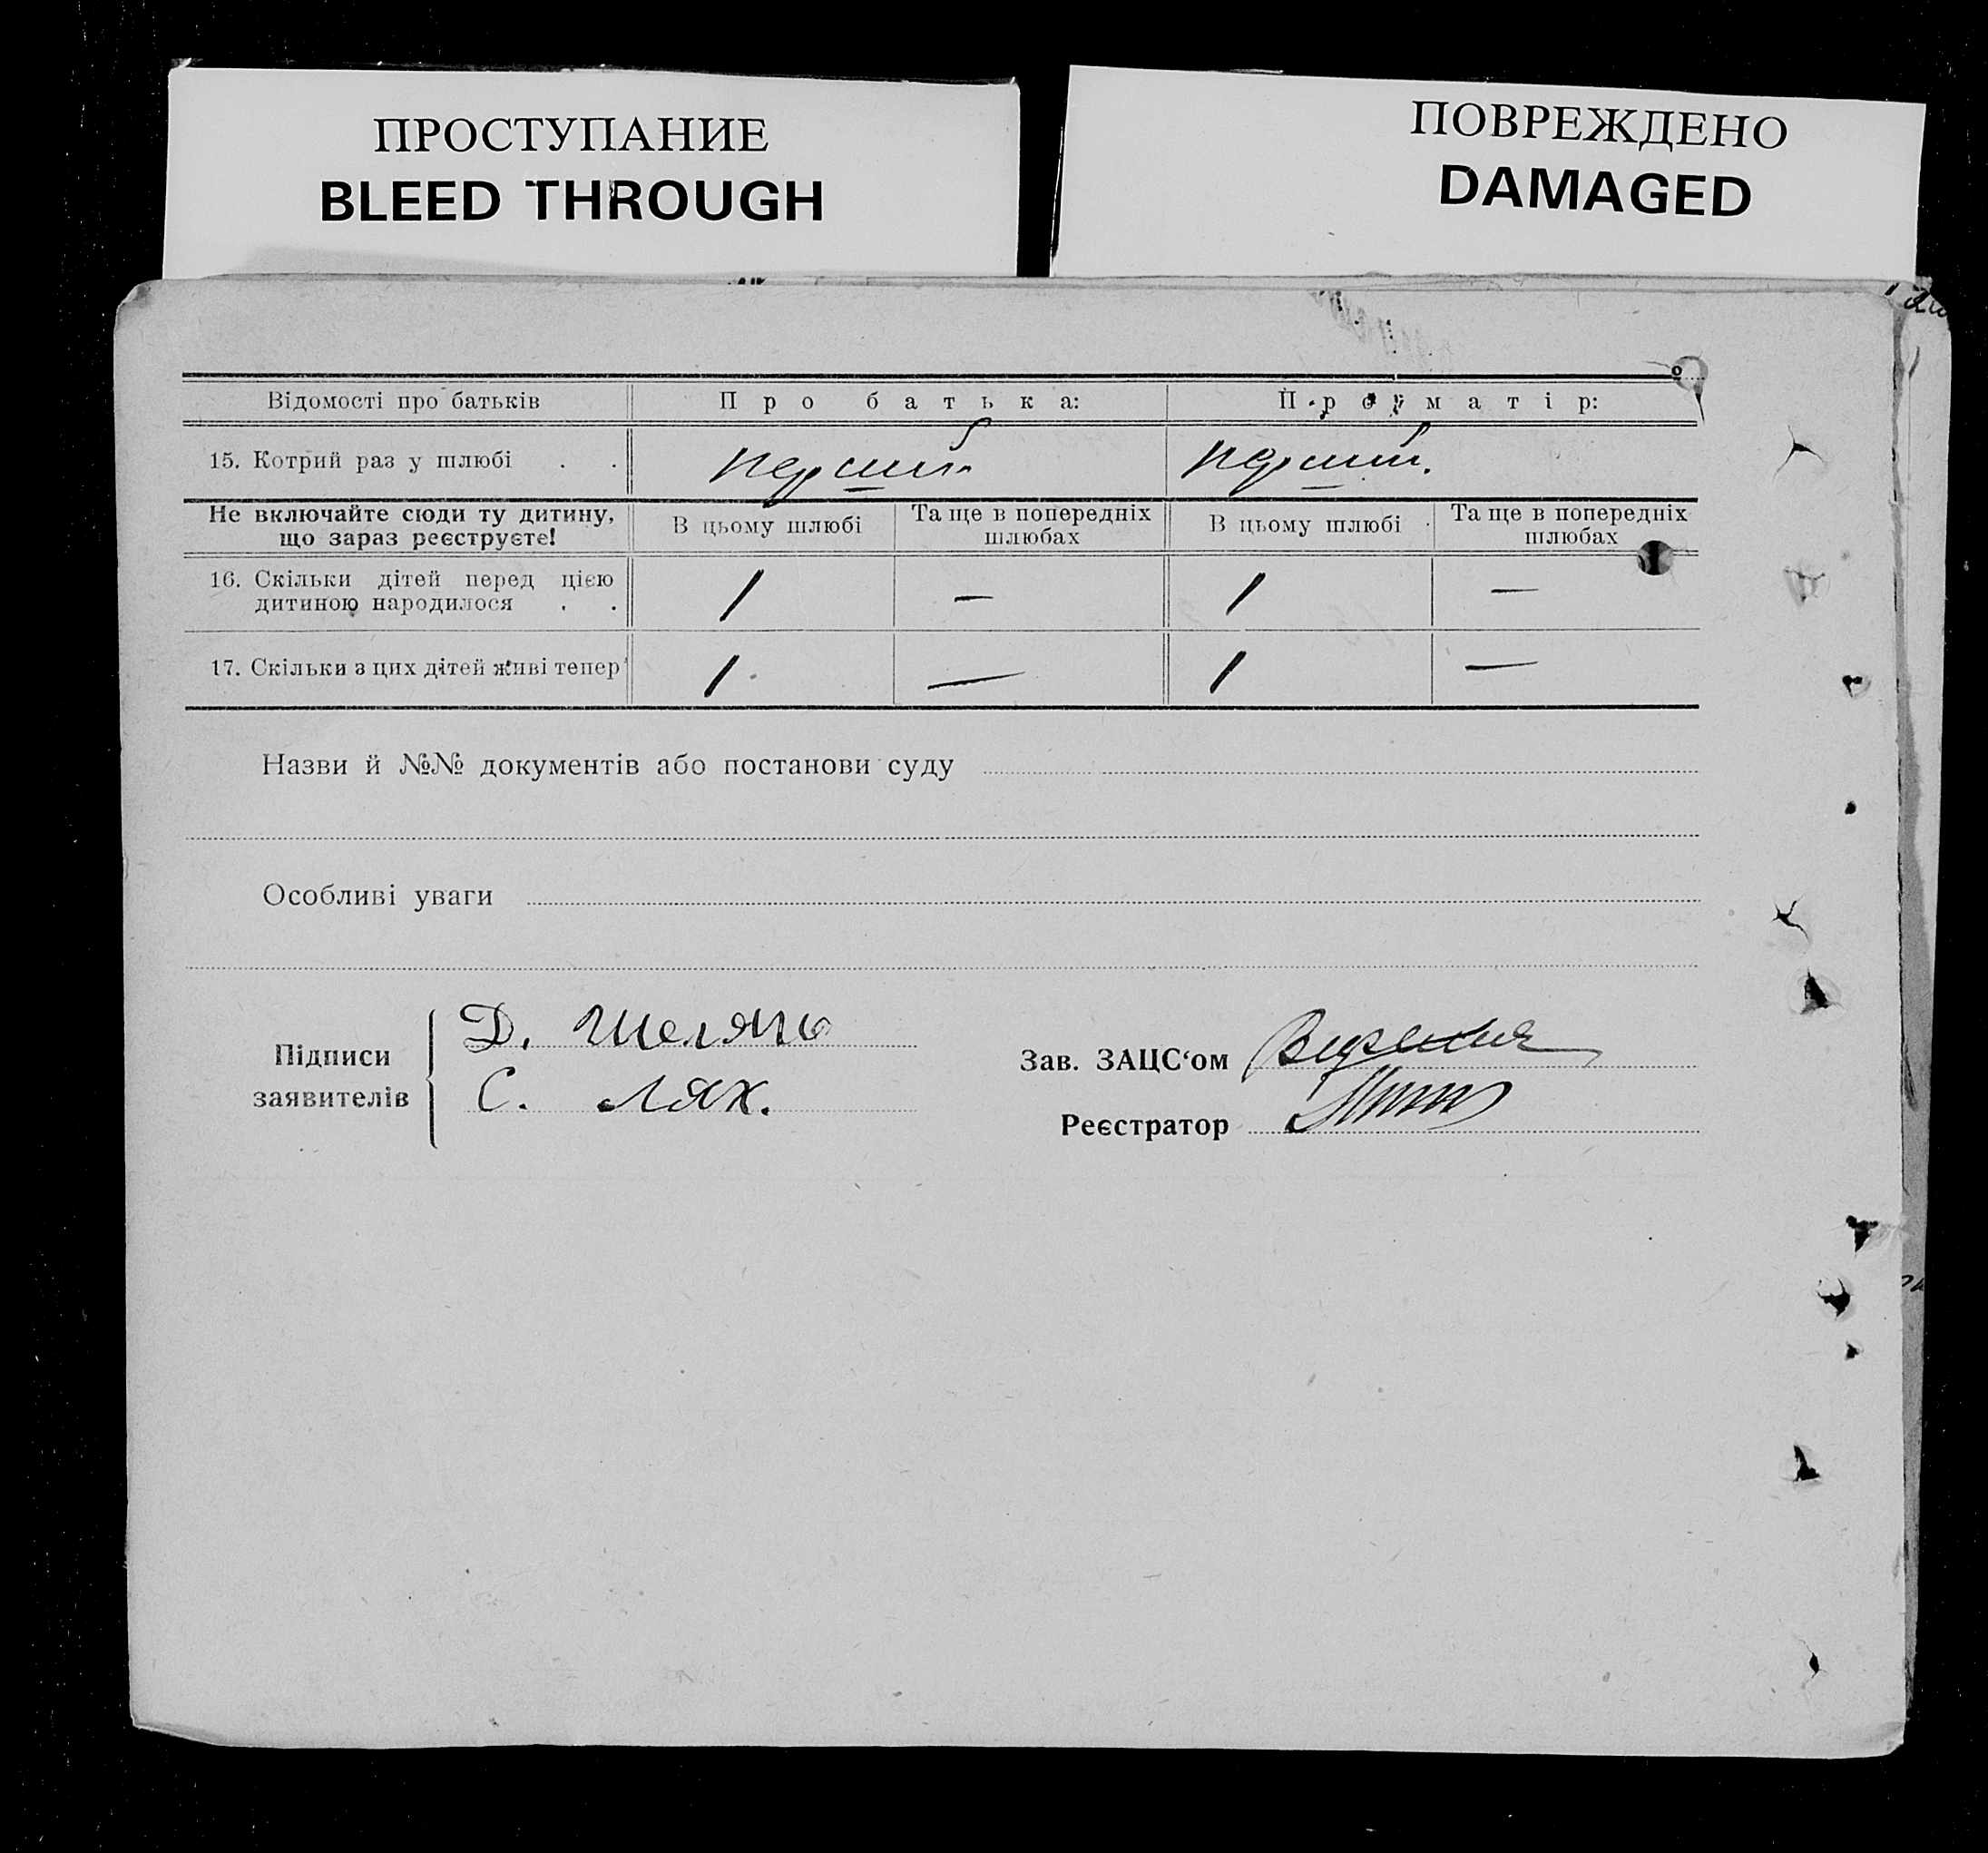 ПРОСТУПАНИЕ
BLEED THROUGH
ПОВРЕЖДЕНО
DAMAGED
Відомості про батьків Про батька: Про матір:
15. Котрий раз у шлюбі . . перший перший.
Не включайте сюди ту дитину, що зараз реєструєте! В цьому шлюбі Та ще в попередніх шлюбах В цьому шлюбі Та ще в попередніх шлюбах
16. Скільки дітей перед цією дитиною народилося . . 1 — 1 —
17. Скільки з цих дітей живі тепер 1 — 1 —
Назви й №№ документів або постанови суду
Особливі уваги
Підписи заявителів
Д.
С. Лях.
Зав. ЗАЦС‘ом
Реєстратор